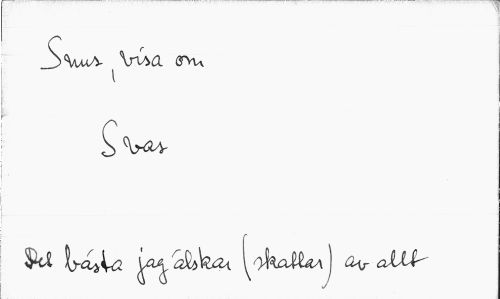 Snus, visa om
Svas
Det bästa jag älskar (skattar) av allt